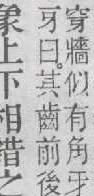 穿牆似有角牙
牙曰其齒前後
象上下相錯之